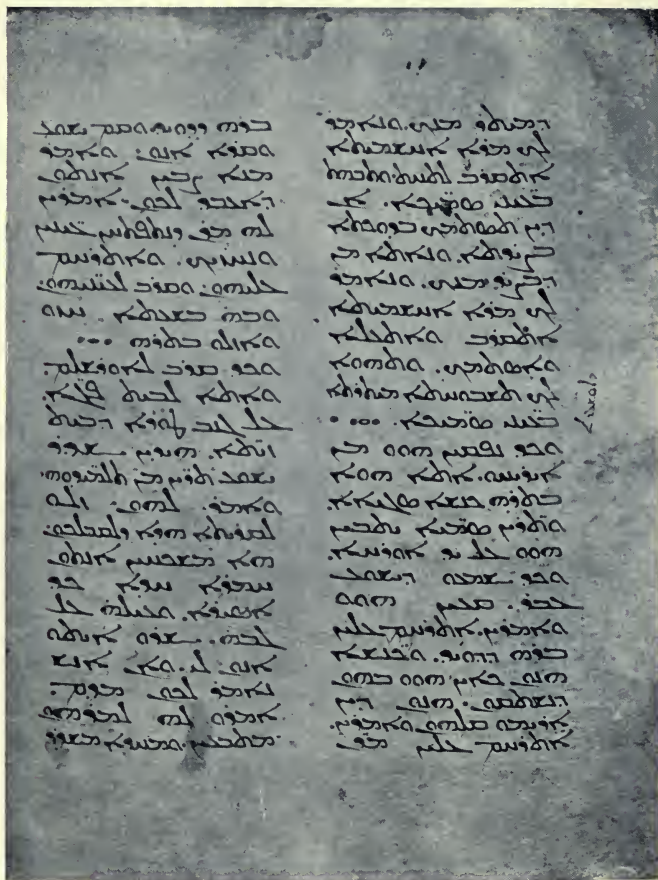 ܕܡܥܠܝ ܡܢܟ. ܘܢܐܡܪ
ܠܟ ܡܪܐ ܐܚܫܡܝܬܐ
ܐܬܩܪܒ ܠܬܚܬ. ܘܬܒܗܬ
ܒܥܝܢܝ ܣܡܝܟܐ. ܐܢ
ܕܝܢ ܬܣܬܡܟ ܒܕܘܟܬܐ
ܒܨܝܪܬܐ. ܘܢܐܬܐ ܡܢ
ܕܒܨܝܪ ܡܢܟ. ܘܢܐܡܪ
ܠܟ ܡܪܐ ܐܚܫܡܝܬܐ
ܐܬܩܪܒ ܘܐܬܥܠܐ
ܘܐܣܬܡܟ. ܘܬܗܘܐ
ܠܟ ܬܫܒܘܚܬܐ ܝܬܝܪܬܐ
ܒܥܝܢܝ ܣܡܝܟܐ.
ܘܟܕ ܢܦܩܝܢ ܗܘܘ ܡܢ
ܐܝܪܝܚܘ. ܐܬܐ ܗܘܐ
ܒܬܪܗ ܟܢܫܐ ܣܓܝܐܐ.
ܘܬܪܝܢ ܣܡܝܐ ܝܬܒܝܢ
ܗܘܘ ܥܠ ܝܕ ܐܘܪܚܐ.
ܘܟܕ ܫܡܥܘ ܕܝܫܘܥ
ܥܒܪ. ܩܥܝܢ ܗܘܘ
ܘܐܡܪܝܢ. ܐܬܪܚܡ ܥܠܝܢ
ܒܪܗ ܕܕܘܝܕ. ܘܟܢܫܐ
ܗܢܘܢ ܟܐܝܢ ܗܘܘ ܒܗܘܢ
ܕܢܫܬܩܘܢ. ܗܢܘܢ ܕܝܢ
ܐܪܝܡܘ ܩܠܗܘܢ ܘܐܡܪܝܢ.
ܐܬܪܚܡ ܥܠܝܢ ܡܪܢ
ܒܪܗ ܕܕܘܝܕ. ܘܩܡ ܝܫܘܥ
ܘܩܪܐ ܐܢܘܢ. ܘܐܡܪ
ܡܢܐ ܨܒܝܢ ܐܢܬܘܢ
ܕܐܥܒܕ ܠܟܘܢ. ܐܡܪܝܢ
ܠܗ ܡܪܢ ܕܢܬܦܬܚܢ ܥܝܢܝܢ
ܘܢܚܙܝܟ. ܘܐܬܪܚܡ
ܥܠܝܗܘܢ. ܘܩܪܒ ܠܥܝܢܝܗܘܢ.
ܘܒܗ ܒܫܥܬܐ ܚܙܘ
ܘܐܙܠܘ ܒܬܪܗ
ܘܟܕ ܩܪܒ ܠܐܘܪܫܠܡ.
ܘܐܬܐ ܠܒܝܬ ܦܓܐ.
ܥܠ ܓܢܒ ܛܘܪܐ ܕܒܝܬ
ܙܝܬܐ. ܗܝܕܝܢ ܫܕܪ
ܝܫܘܥ ܬܪܝܢ ܡܢ ܬܠܡܝܕܘܗܝ.
ܘܐܡܪ ܠܗܘܢ. ܙܠܘ
ܠܩܪܝܬܐ ܗܕܐ ܕܠܩܘܒܠܟܘܢ.
ܗܐ ܡܫܟܚܝܢ ܐܢܬܘܢ
ܚܡܪܐ ܚܕܐ ܟܕ
ܐܣܝܪܐ. ܘܥܝܠܗ ܥܠ
ܓܒܗ. ܫܪܘ ܐܝܬܘ
ܐܢܘܢ ܠܝ. ܘܐܢ ܐܢܫ
ܢܐܡܪ ܠܟܘܢ ܡܕܡ.
ܐܡܪܘ ܠܗ ܠܡܪܗܘܢ
ܡܬܒܥܝܢ. ܘܡܚܕܐ ܡܫܕܪ